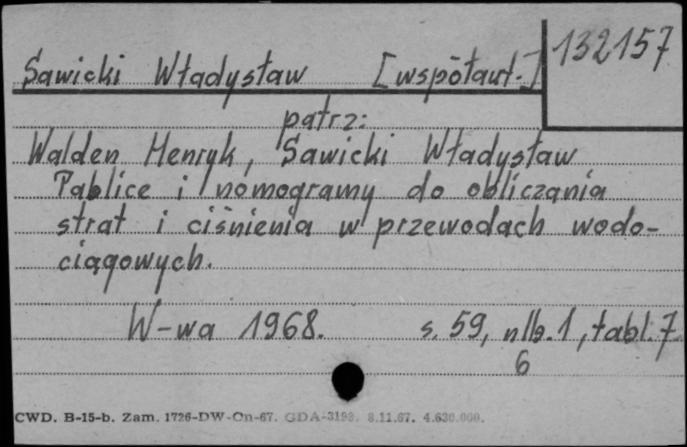 132157
Sawicki Władysław [współaut.]
patrz:
Walden Henryk, Sawicki Władysław
Tablice i nomogramy do obliczania
strat i ciśnienia w przewodach wodo-
ciągowych.
W-wa 1968. s. 59, nlb. 1, tabl. 7.
6
CWD. B-15-b. Zam. 1726-DW-On-67. GDA-3193. 8.11.67. 4.630.000.